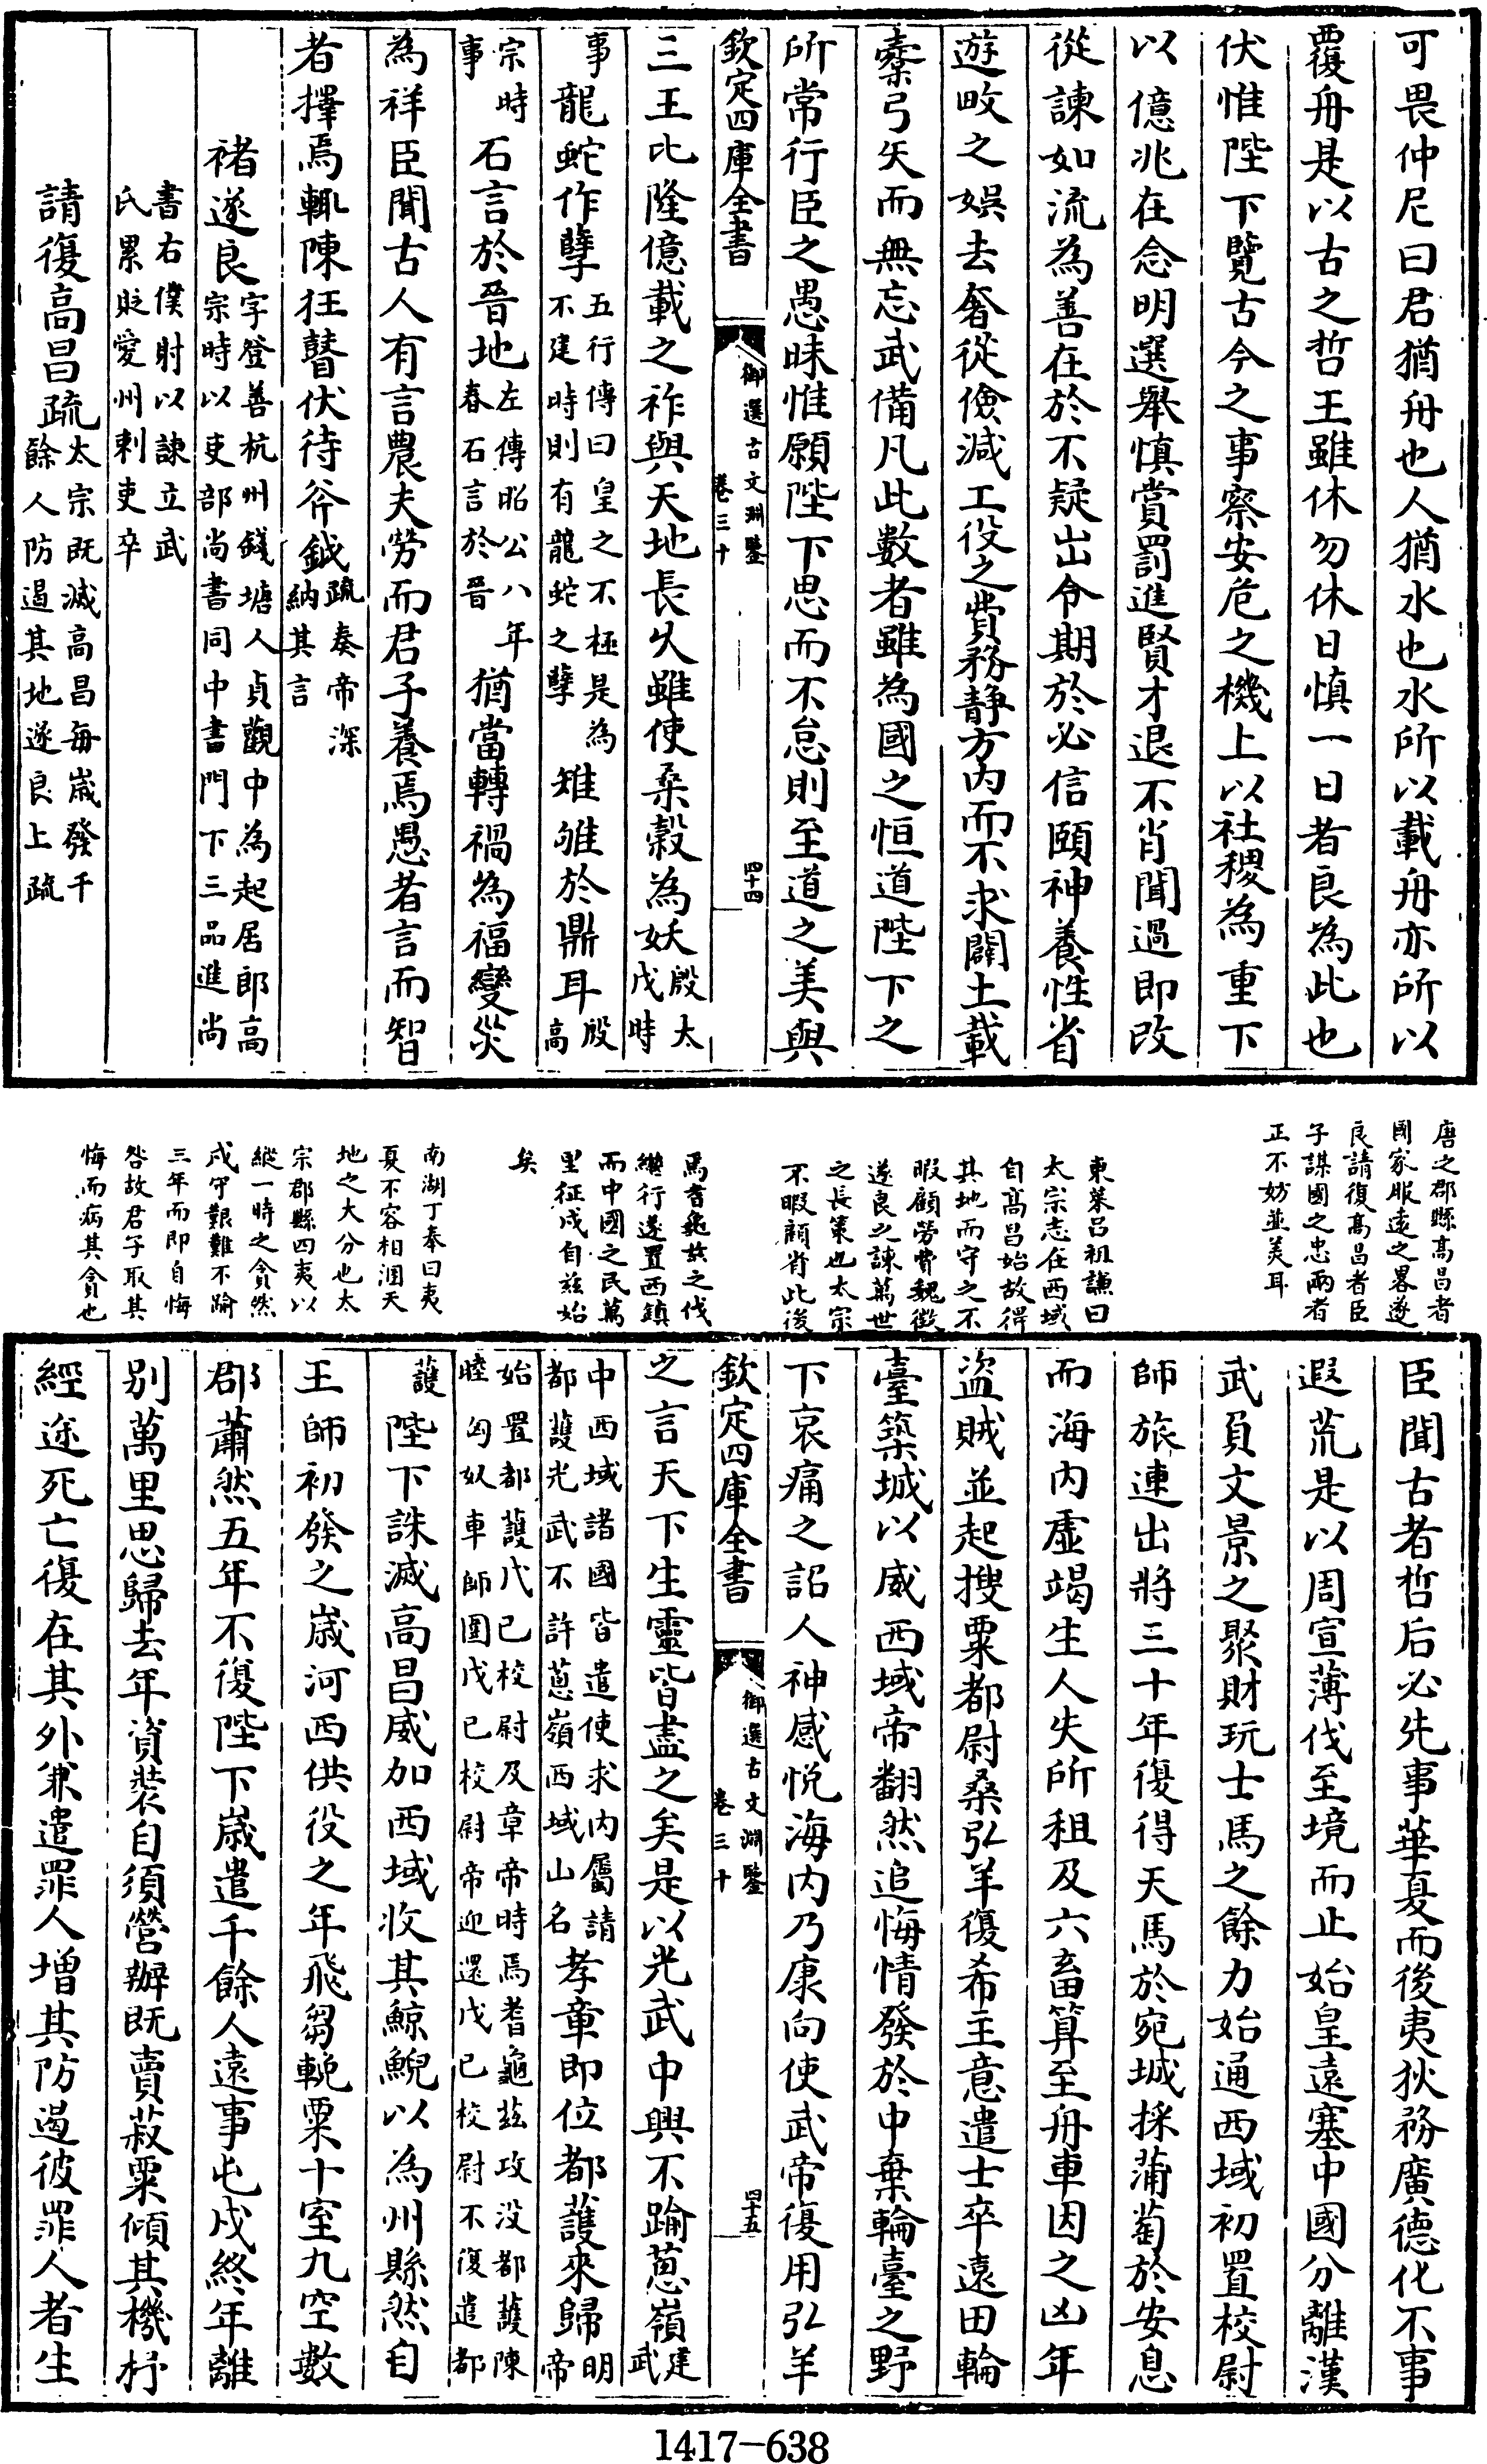 可畏仲尼曰君猶舟也人猶水也水所以載舟亦所以
覆舟是以古之哲王雖休勿休日慎一日者良為此也
伏惟陛下覽古今之事察安危之機上以社稷為重下
以億兆在念明選舉慎賞罰進賢才退不肖聞過即改
從諫如流為善在於不疑出令期於必信頤神養性省
遊畋之娛去奢從儉減工役之費務靜方內而不求闢土載
櫜弓矢而無忘武備凡此數者雖為國之恒道陛下之
所常行臣之愚昧惟願陛下思而不怠則至道之美與
欽定四庫全書
御選古文淵鑒
卷三十
四十四
三王比隆億載之祚與天地長久雖使桑榖為妖殷太
戊時
事龍蛇作孽五行傳曰皇之不極是為
不建時則有龍蛇之孽雉雊於鼎耳殷
高
宗時
事石言於晉地左傳昭公八年
春石言於晉猶當轉禍為福變災
為祥臣聞古人有言農夫勞而君子養焉愚者言而智
者擇焉輒陳狂瞽伏待斧鉞疏奏帝深
納其言
褚遂良字登善杭州錢塘人貞觀中為起居郎高
宗時以吏部尚書同中書門下三品進尚
書右僕射以諫立武
氏累貶愛州刺吏卒
請復高昌疏太宗既滅高昌每嵗發千
餘人防遏其地遂良上疏
唐之郡縣高昌者
國家服遠之畧遂
良請復高昌者臣
子謀國之忠兩者
正不妨並美耳
東萊呂祖謙曰
太宗志在西域
自高昌始故得
其地而守之不
暇顧勞費魏徵
遂良之諫萬世
之長策也太宗
不暇顧省此後
焉耆龜茲之伐
繼行遂置西鎮
而中國之民萬
里征戍自兹始
矣
南湖丁奉曰夷
夏不容相溷天
地之大分也太
宗郡縣四夷以
縱一時之貪然
戍守艱難不踰
三年而即自悔
咎故君子取其
悔而病其貪也
臣聞古者哲后必先事華夏而後夷狄務廣德化不事
遐荒是以周宣薄伐至境而止始皇遠塞中國分離漢
武負文景之聚財玩士馬之餘力始通西域初置校尉
師旅連出將三十年復得天馬於宛城採蒲萄於安息
而海內虛竭生人失所租及六畜算至舟車因之凶年
盜賊並起搜粟都尉桑弘羊復希主意遣士卒遠田輪
臺築城以威西域帝翻然追悔情發於中棄輪臺之野
下哀痛之詔人神感悅海內乃康向使武帝復用弘羊
欽定四庫全書
御選古文淵鑒
卷三十
四十五
之言天下生靈皆盡之矣是以光武中興不踰蔥嶺建
武
中西域諸國皆遣使求內屬請
都護光武不許蔥嶺西域山名孝章即位都護來歸明
帝
始置都護戊已校尉及章帝時焉耆龜茲攻没都護陳
睦匈奴車師圍戊已校尉帝迎還戊已校尉不復遣都
護陛下誅滅高昌威加西域收其鯨鯢以為州縣然自
王師初發之嵗河西供役之年飛芻輓粟十室九空數
郡蕭然五年不復陛下嵗遣千餘人遠事屯戍終年離
别萬里思歸去年資裝自須營辦既賣菽粟傾其機杼
經途死亡復在其外兼遣罪人增其防遏彼罪人者生
1417-638